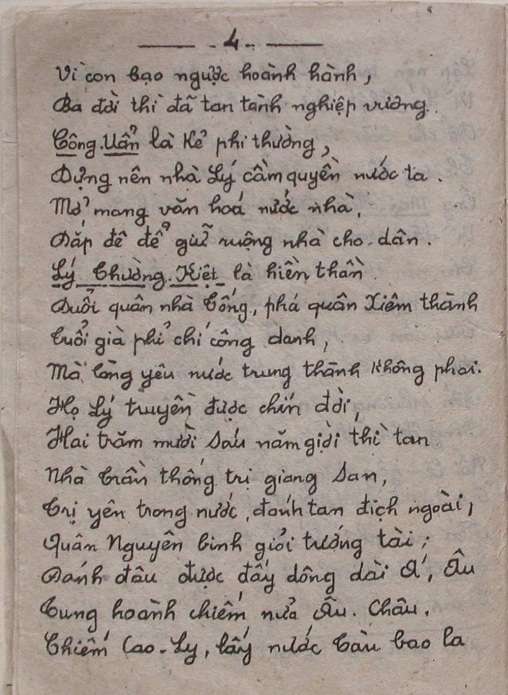 4
Vì con bạo ngược hoành hành,
Ba đời thì đã tan tành nghiệp vương.
Công Uẩn là kẻ phi thường,
Dựng nên nhà Lý cầm quyền nước ta.
Mở mang văn hoá nước nhà,
Đắp đê để giữ ruộng nhà cho dân.
Lý Thường Kiệt là hiền thần
Đuổi quân nhà Tống, phá quân Xiêm thành
Tuổi già phỉ chí công danh,
Mà lòng yêu nước trung thành không phai.
Họ Lý truyền được chín đời,
Hai trăm mười sáu năm giời thì tan
Nhà Trần thống trị giang san,
Trị yên trong nước, đánh tan địch ngoài,
Quân Nguyên binh giỏi tướng tài;
Đánh đâu được đấy dông dài Á, Âu
Tung hoành chiếm nửa Âu. Châu,
Chiếm Cao-Ly, lấy nước Tàu bao la